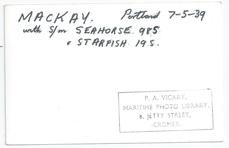 MACKAY. Portland 7-5-39
with S/m SEAHORSE 98S
& STARFISH 19S.
P. A. VICARY,
MARITIME PHOTO LIBRARY,
8, JETTY STREET,
CROMER.